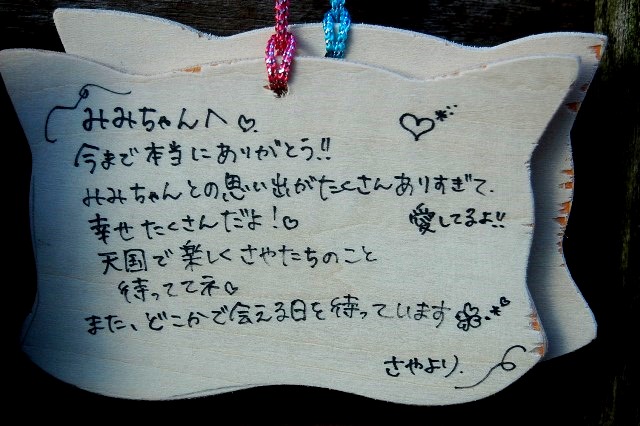 みみちゃんへ♡.
今まで本当にありがとう!!
みみちゃんとの思い出がたくさんありすぎて.
幸せたくさんだよ!♡
愛してるよ!!
天国で楽しくさやたちのこと
待っててネ♡
また、どこかで会える日を待っています
さやより.